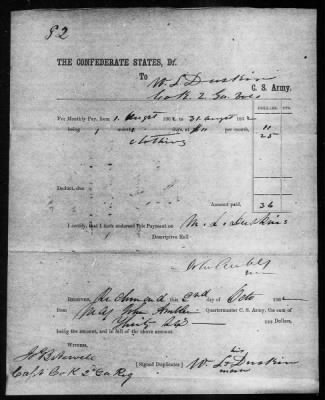 82
THE CONFEDERATE STATES, Dr.
To W. L. Duskin
Co K. 2 Ga
C. S. Army.
DOLLARS. CTS.
For Monthly Pay, from 1. August 186 to 31 August 186
being 1 month days, at $11 per month, 11
clothing 25
Deduct, due
Amount paid, 36
I certify, that I have endorsed this Payment on
Descriptive Roll
RECEIVED, Richmond this day of Octo 186
from John Ambler Quartermaster C. S. Army, the sum of
Thirty Six Dollars,
being the amount, and in full of the above account.
Capt Co K 2 Ga Reg
[Signed Duplicates] W. L. Duskin
his
mark